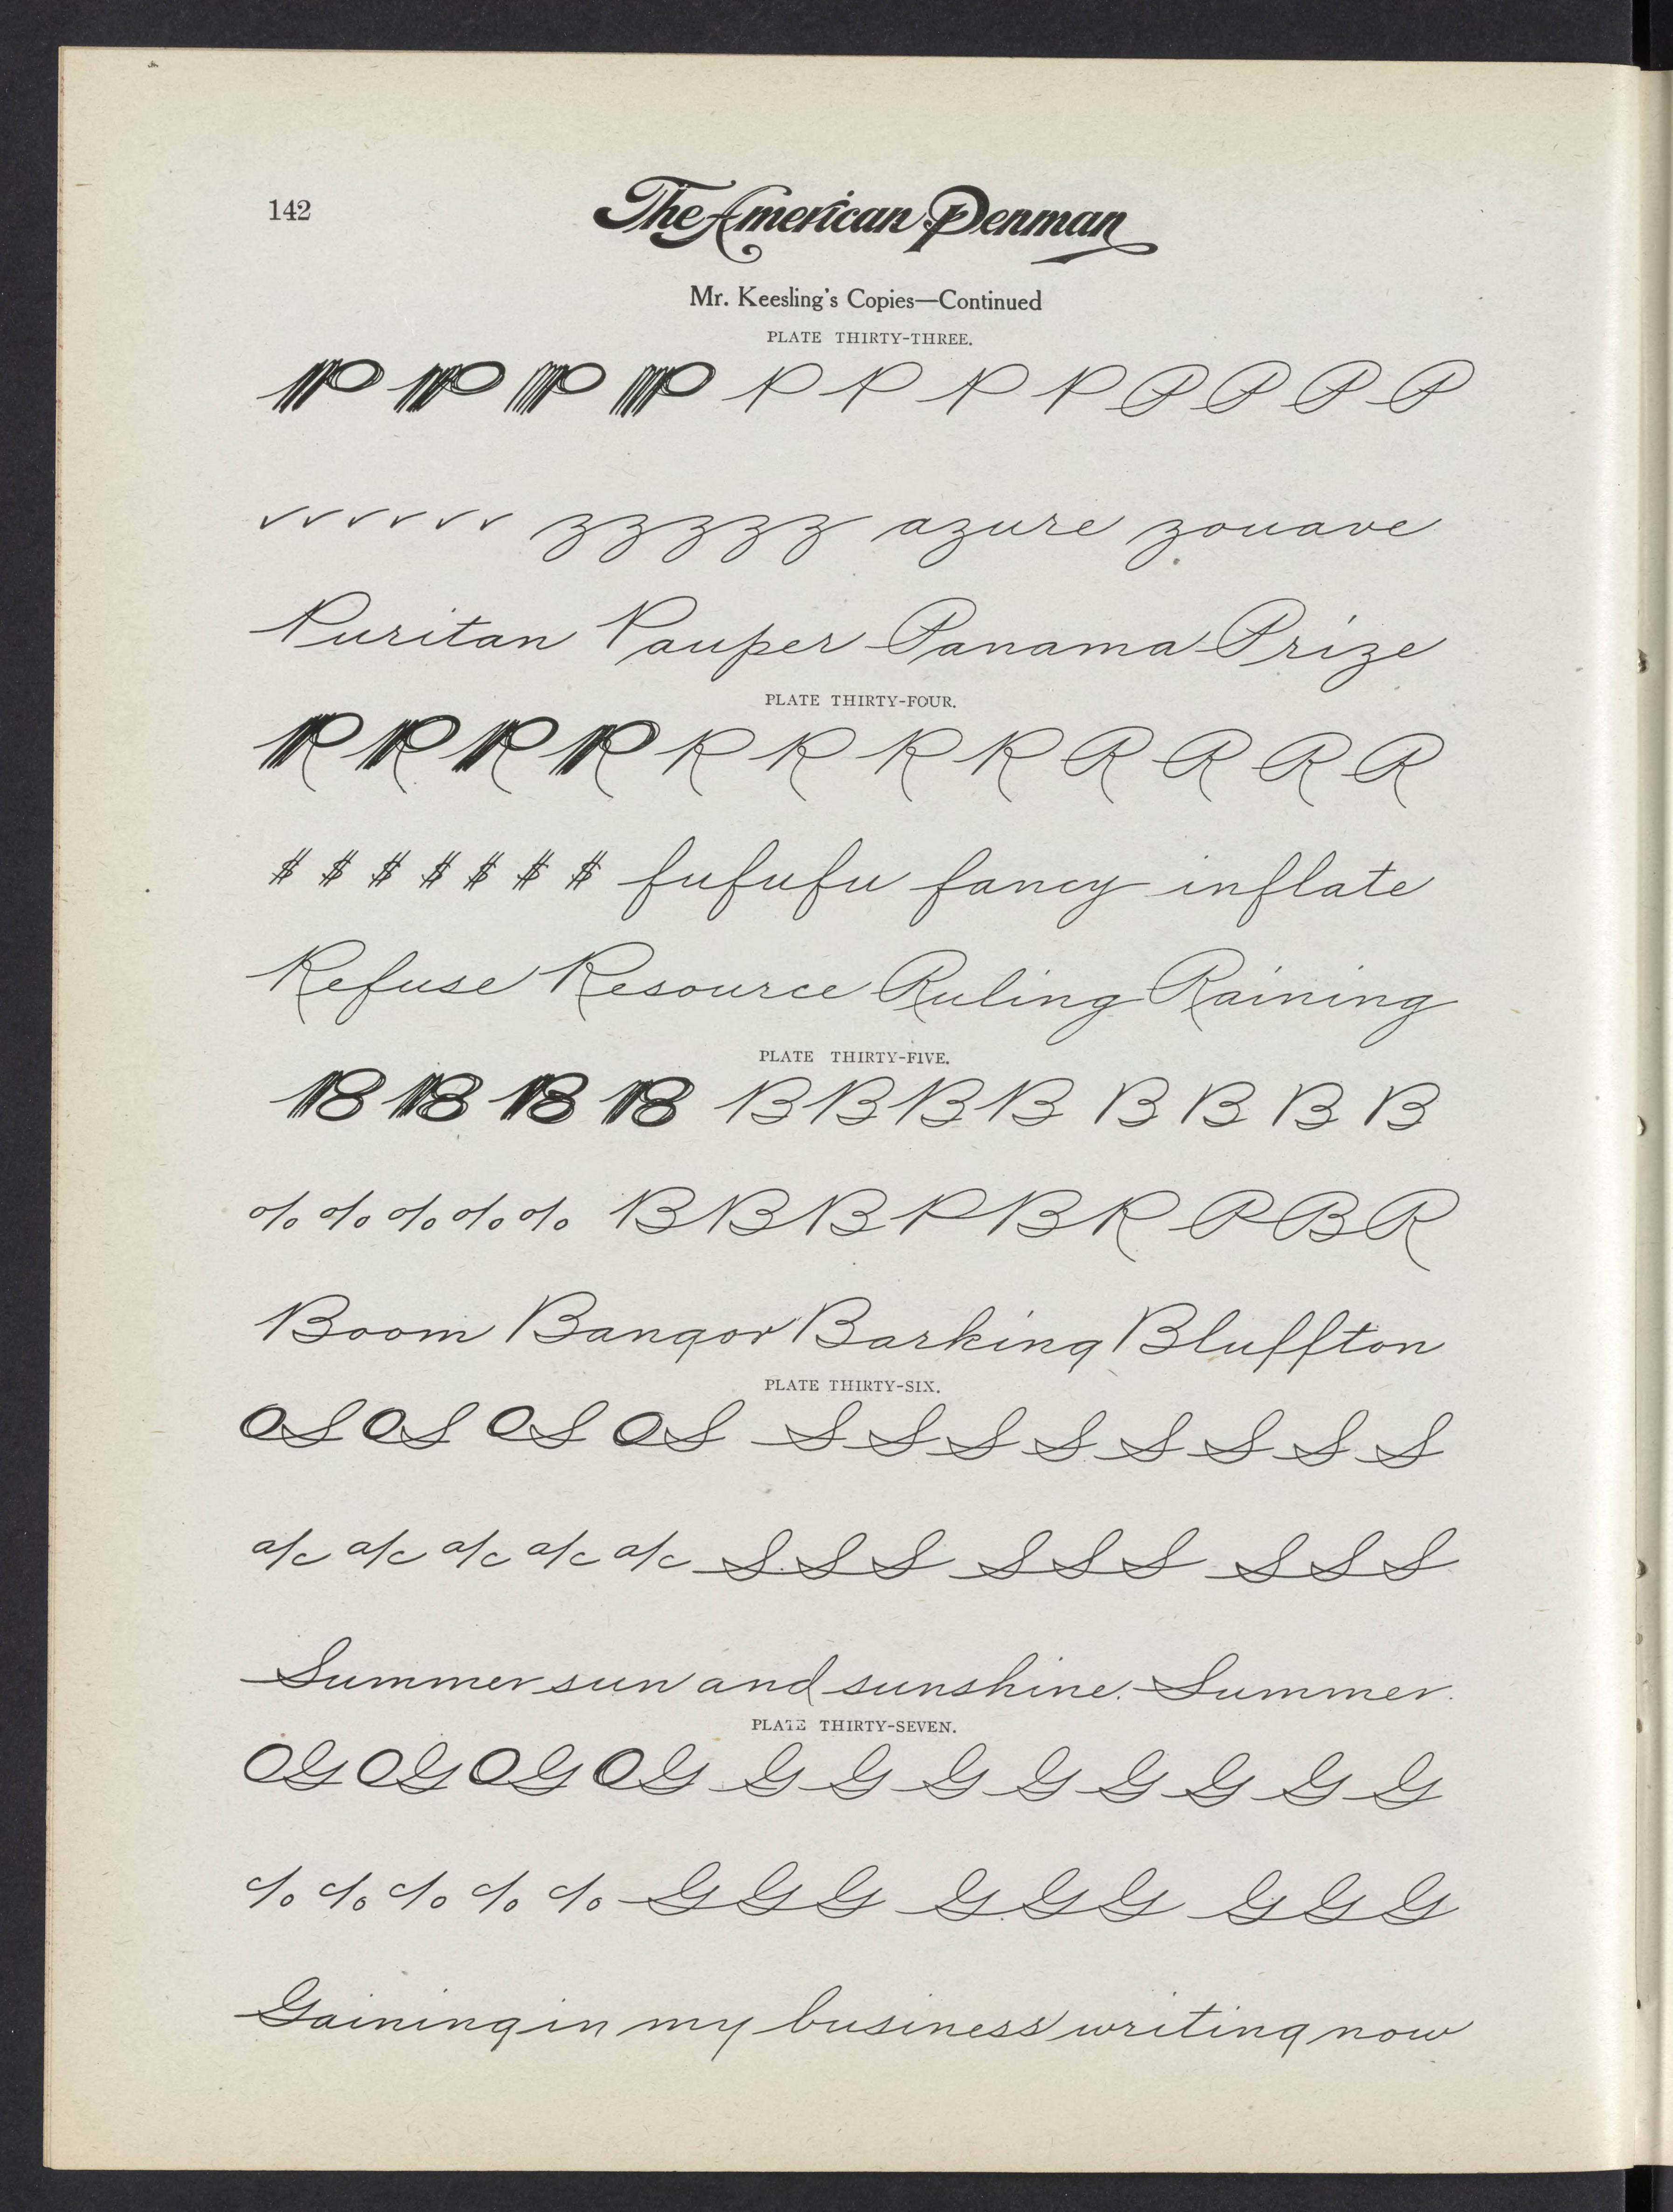 142
The American Penman
Mr. Keesling's Copies—Continued
PLATE THIRTY-THREE.
P P P P P P P P P P P P
✓ ✓ ✓ ✓ ✓ ✓ z z z z z azure zouave
Puritan Pauper Panama Prize
PLATE THIRTY-FOUR.
R R R R R R R R R R R R
$ $ $ $ $ $ $ fufufu fancy inflate
Refuse Resource Ruling Raining
PLATE THIRTY-FIVE.
B B B B B B B B B B B B
% % % % % B B B P B R P B R
Boom Bangor Barking Bluffton
PLATE THIRTY-SIX.
OS OS OS OS S S S S S S S S
a/c a/c a/c a/c a/c S S S S S S S S S
Summer sun and sunshine. Summer.
PLATE THIRTY-SEVEN.
OG OG OG OG G G G G G G G G
c/o c/o c/o c/o c/o G G G G G G G G G
Gaining in my business writing now